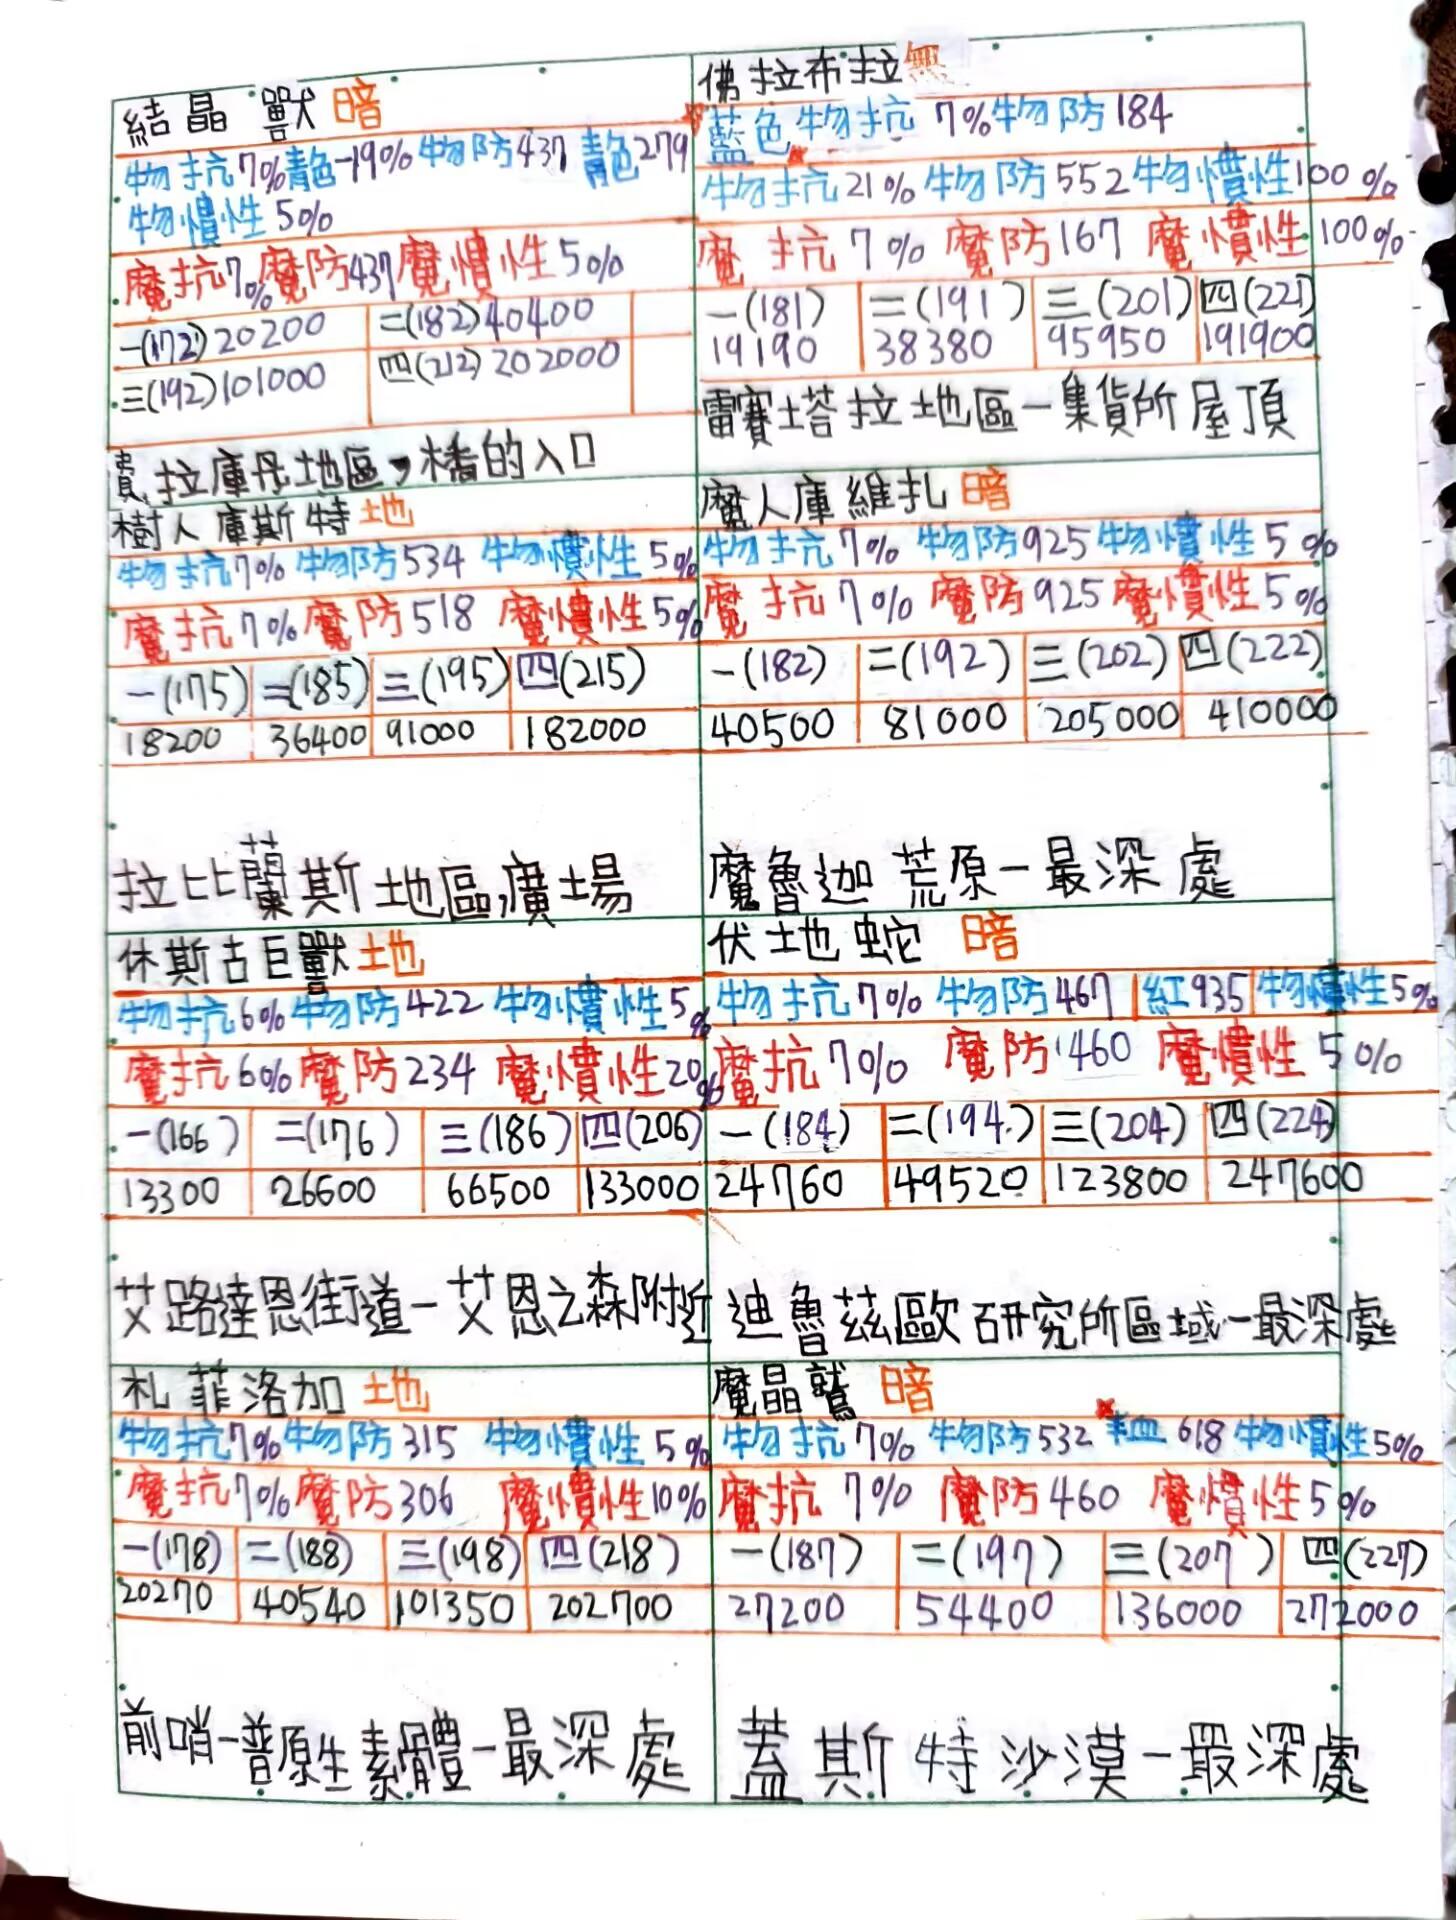 結晶獸 暗
物抗7%青色-19% 物防437 青色279
物慣性5%
魔抗7% 魔防437 魔慣性5%
一(172)20200 二(182)40400
三(192)101000 四(212)202000
費拉庫丹地區,橋的入口
樹人庫斯特 地
物抗7% 物防534 物慣性5%
魔抗7% 魔防518 魔慣性5%
一(175) 二(185) 三(195) 四(215)
18200 36400 91000 182000
拉比蘭斯地區,廣場
休斯古巨獸 地
物抗6% 物防422 物慣性5%
魔抗6% 魔防234 魔慣性20%
一(166) 二(176) 三(186) 四(206)
13300 26600 66500 133000
艾路達恩街道一艾恩之森附近
札菲洛加 地
物抗7% 物防315 物慣性5%
魔抗7% 魔防306 魔慣性10%
一(178) 二(188) 三(198) 四(218)
20270 40540 101350 202700
前哨一普原生素體一最深處
佛拉布拉 無
藍色 物抗7% 物防184
物抗21% 物防552 物慣性100%
魔抗7% 魔防167 魔慣性100%
一(181) 二(191) 三(201) 四(221)
19190 38380 95950 191900
雷賽塔拉地區一集貨所屋頂
魔人庫維扎 暗
物抗7% 物防925 物慣性5%
魔抗7% 魔防925 魔慣性5%
一(182) 二(192) 三(202) 四(222)
40500 81000 205000 410000
魔魯迦荒原一最深處
伏地蛇 暗
物抗7% 物防467 紅935 物慣性5%
魔抗7% 魔防460 魔慣性5%
一(184) 二(194) 三(204) 四(224)
24760 49520 123800 247600
迪魯茲歐研究所區域一最深處
魔晶鷲 暗
物抗7% 物防532 618 物慣性5%
魔抗7% 魔防460 魔慣性5%
一(187) 二(197) 三(207) 四(227)
27200 54400 136000 272000
蓋斯特沙漠一最深處